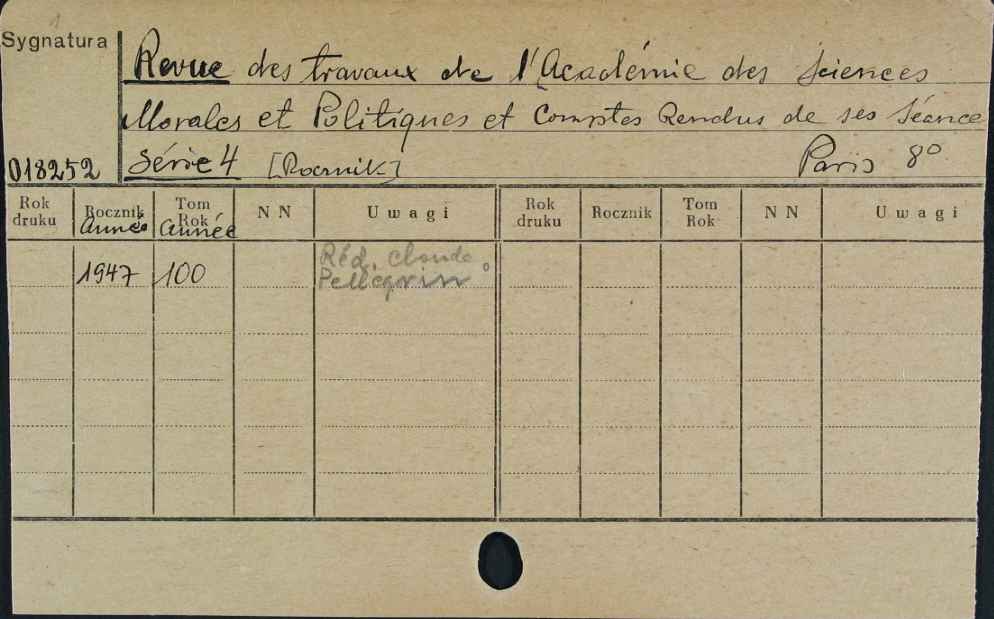 1
Sygnatura
Revue des travaux de l'Académie des Sciences
Morales et Politiques et Comptes Rendus de ses Séance
018252 Série 4 [Rocznik] Paris 8°
Rok druku Rocznik Année Tom Rok Année NN Uwagi Rok druku Rocznik Tom Rok NN Uwagi
1947 100 Réd. Claude
Pellegrin